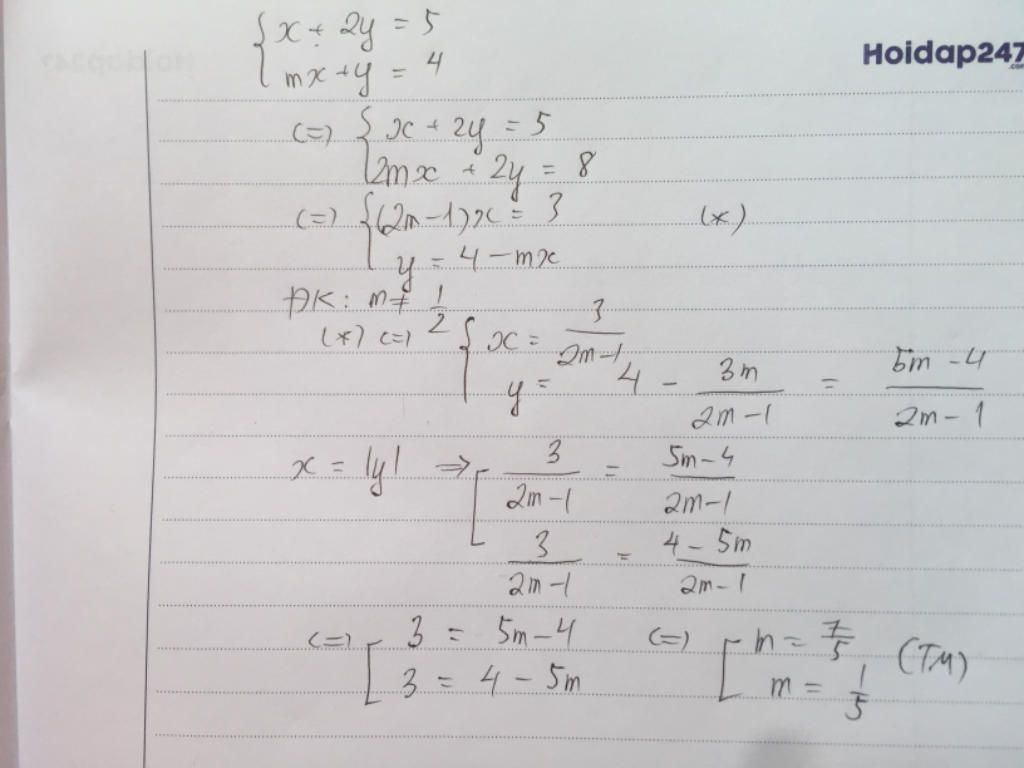 { x + 2y = 5
Hoidap247.com
{ mx + y = 4
<=> { x + 2y = 5
{ 2mx + 2y = 8
<=> { (2m-1)x = 3 (*)
{ y = 4 - mx
ĐK: m ≠ 1/2
(*) <=> { x = 3/(2m-1)
{ y = 4 - 3m/(2m-1) = (5m-4)/(2m-1)
x = |y| => [ 3/(2m-1) = (5m-4)/(2m-1)
[ 3/(2m-1) = (4-5m)/(2m-1)
<=> [ 3 = 5m-4 <=> [ m = 7/5 (TM)
[ 3 = 4 - 5m [ m = 1/5